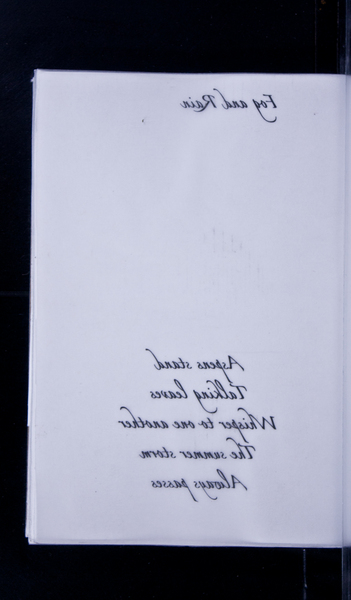 Fog and Rain
Aspens stand
Talking leaves
Whisper to one another
The summer storm
Always passes